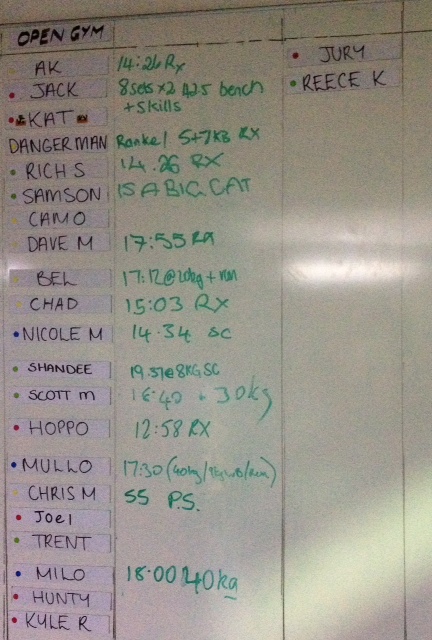 OPEN GYM
AK 14:26 Rx
JACK 8sets x2 42.5 bench
+ skills
KAT
DANGERMAN 5+7KB RX
RICH S 14.26 RX
SAMSON IS A BIG CAT
CAMO
DAVE M 17:55 RX
BEL 17:12@20kg + run
CHAD 15:03 RX
NICOLE M 14.34 SC
SHANDEE 19.57@8KG SC
SCOTT M 16:40 30kg
HOPPO 12:58 RX
MULLO 17:30 (40kg/9kgWB/Run)
CHRIS M 55 P.S.
Joel
TRENT
MILO 18:00 40kg
HUNTY
KYLE R
JURY
REECE K